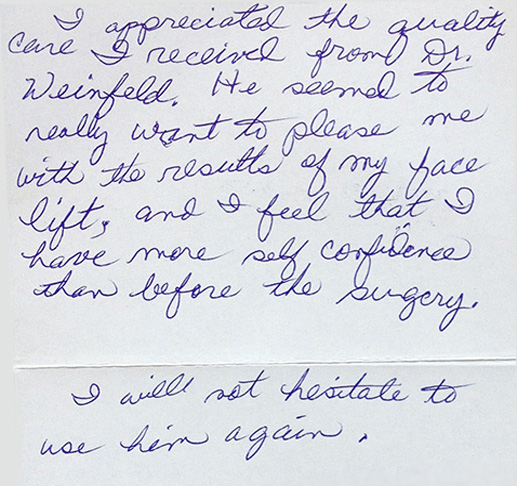 I appreciated the quality
care I received from Dr.
Weinfeld. He seemed to
really want to please me
with the results of my face
lift, and I feel that I
have more self confidence
than before the surgery.
I will not hesitate to
use him again.